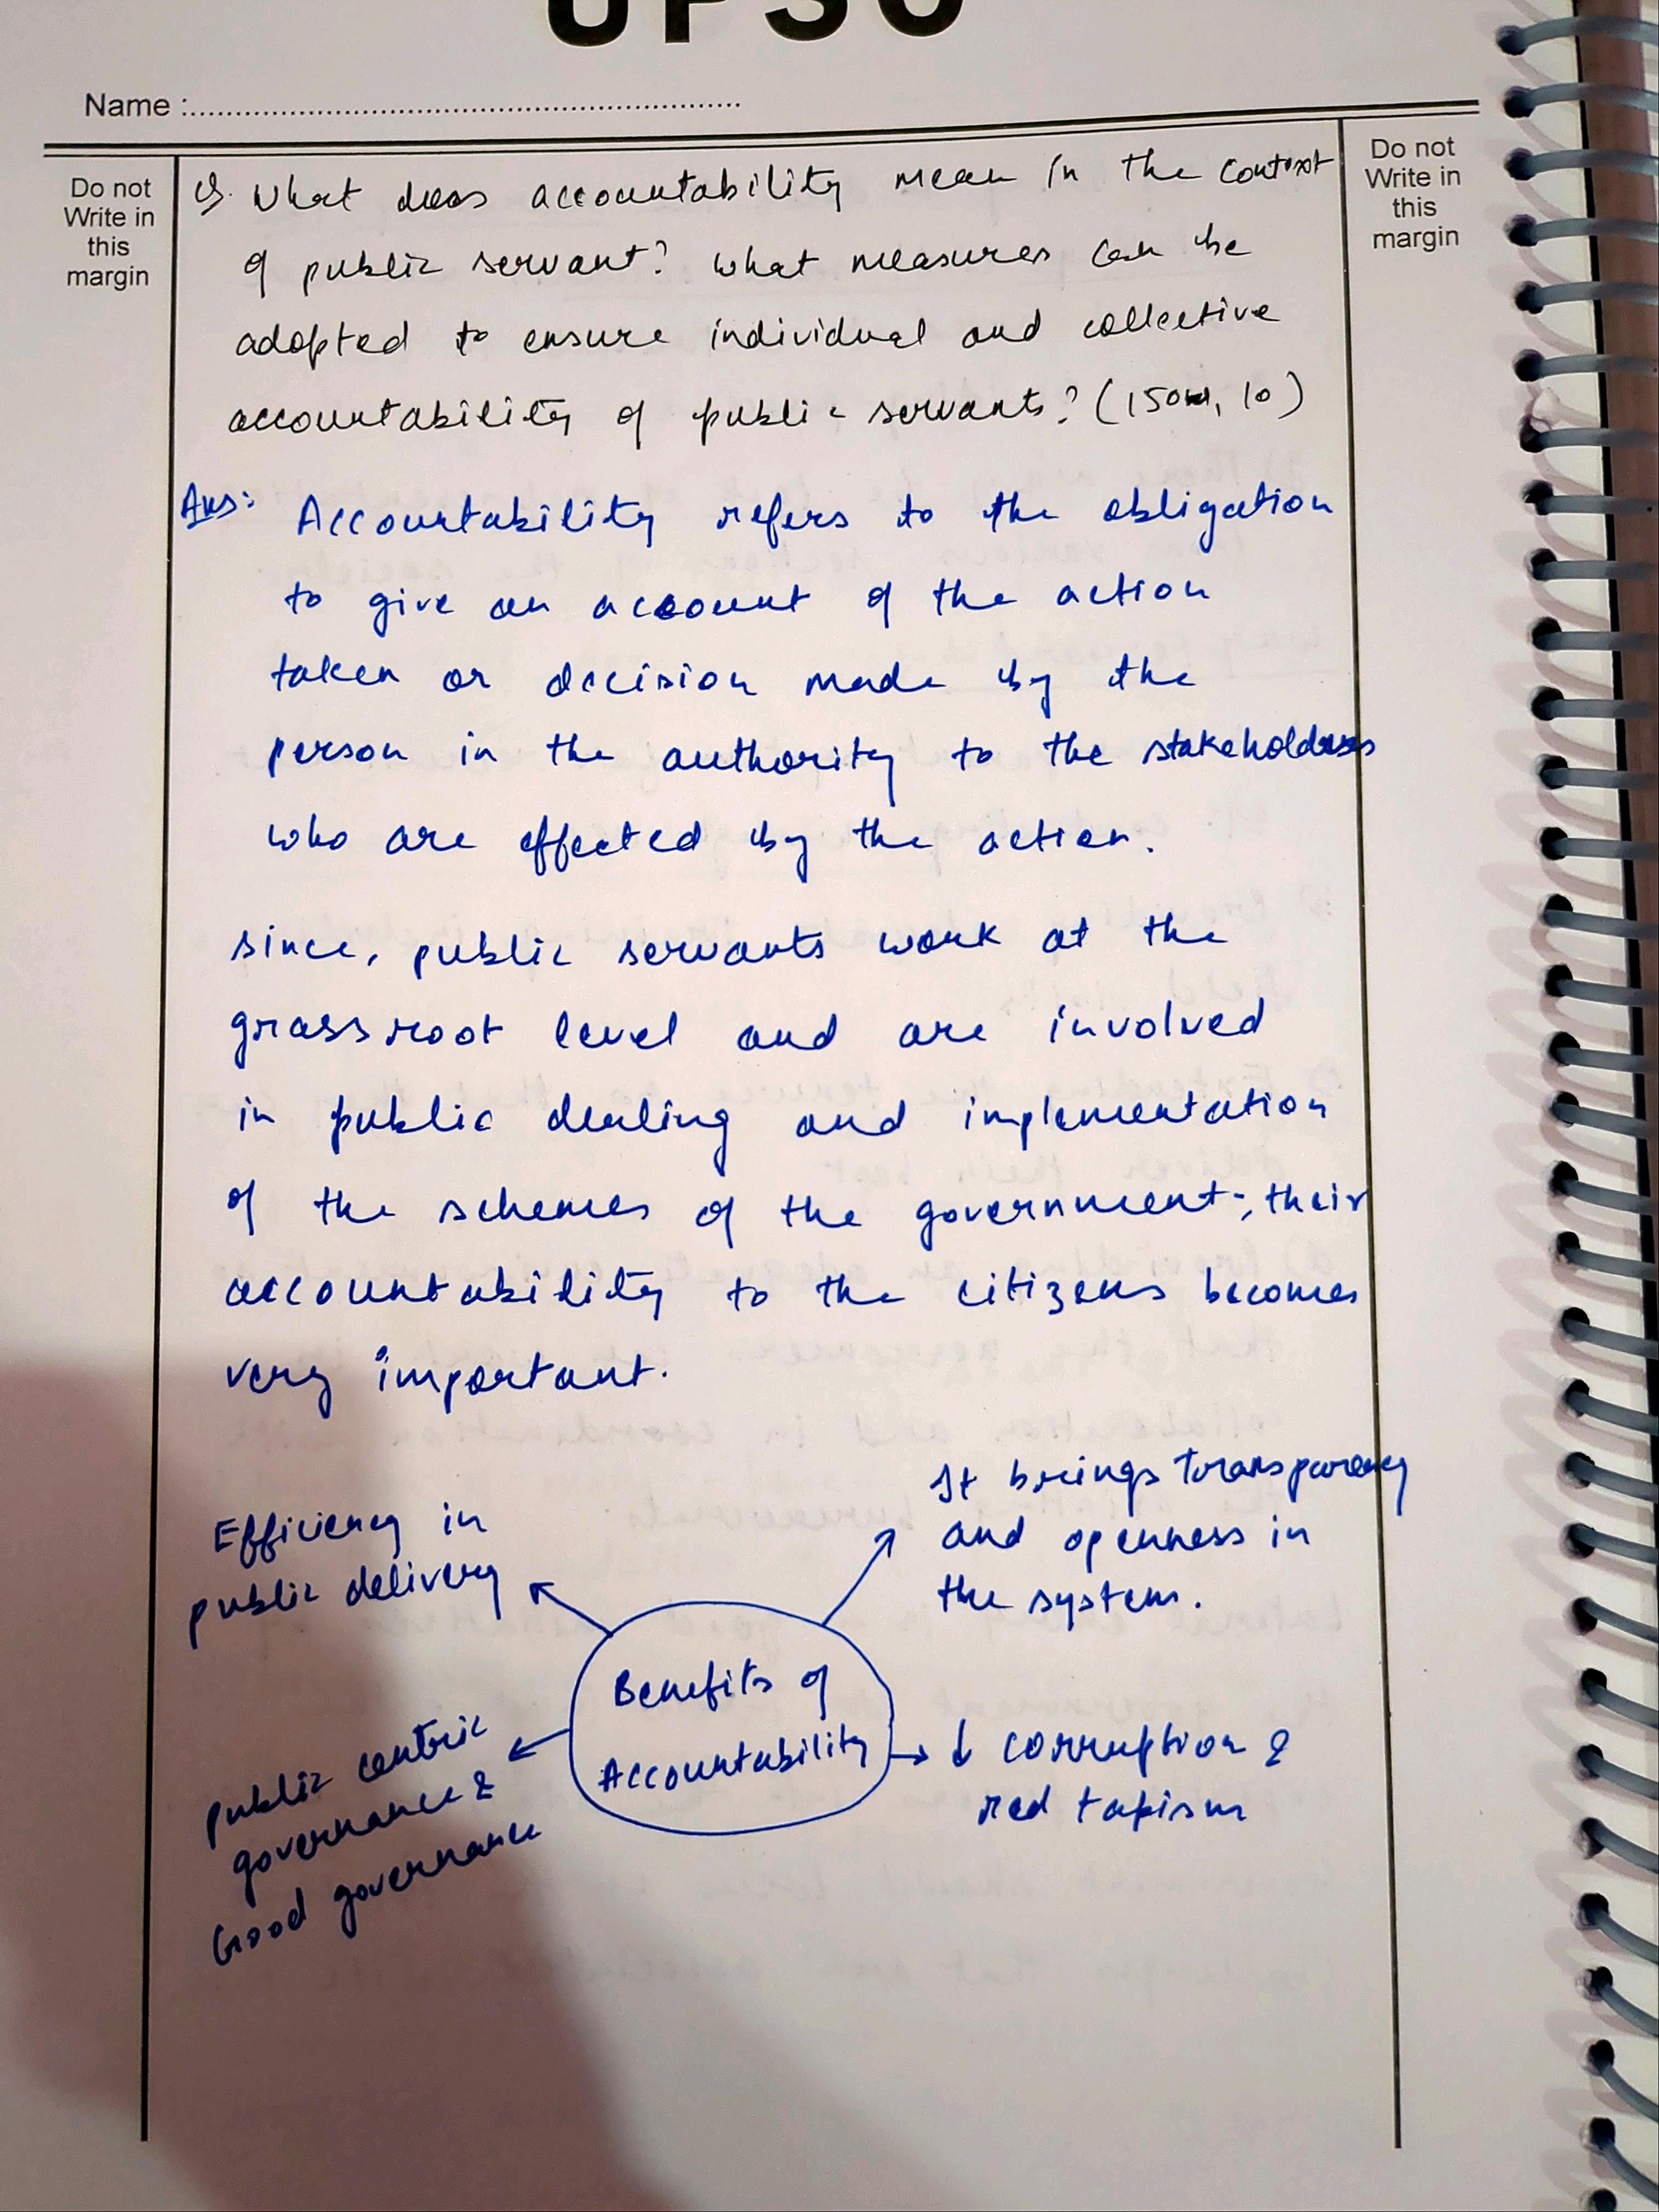 UPSC
Name :
Do not
Write in
this
margin
Do not
Write in
this
margin
Q. What does accountability mean in the context
of public servant? What measures can be
adopted to ensure individual and collective
accountability of public servants? (150w, 10)
Ans: Accountability refers to the obligation
to give an account of the action
taken or decision made by the
person in the authority to the stakeholders
who are effected by the action.
since, public servants work at the
grassroot level and are involved
in public dealing and implementation
of the schemes of the government, their
accountability to the citizens becomes
very important.
Efficiency in
public delivery
It brings transparency
and openness in
the system.
Benefits of
Accountability
public centric
governance &
Good governance
↓ corruption &
red tapism